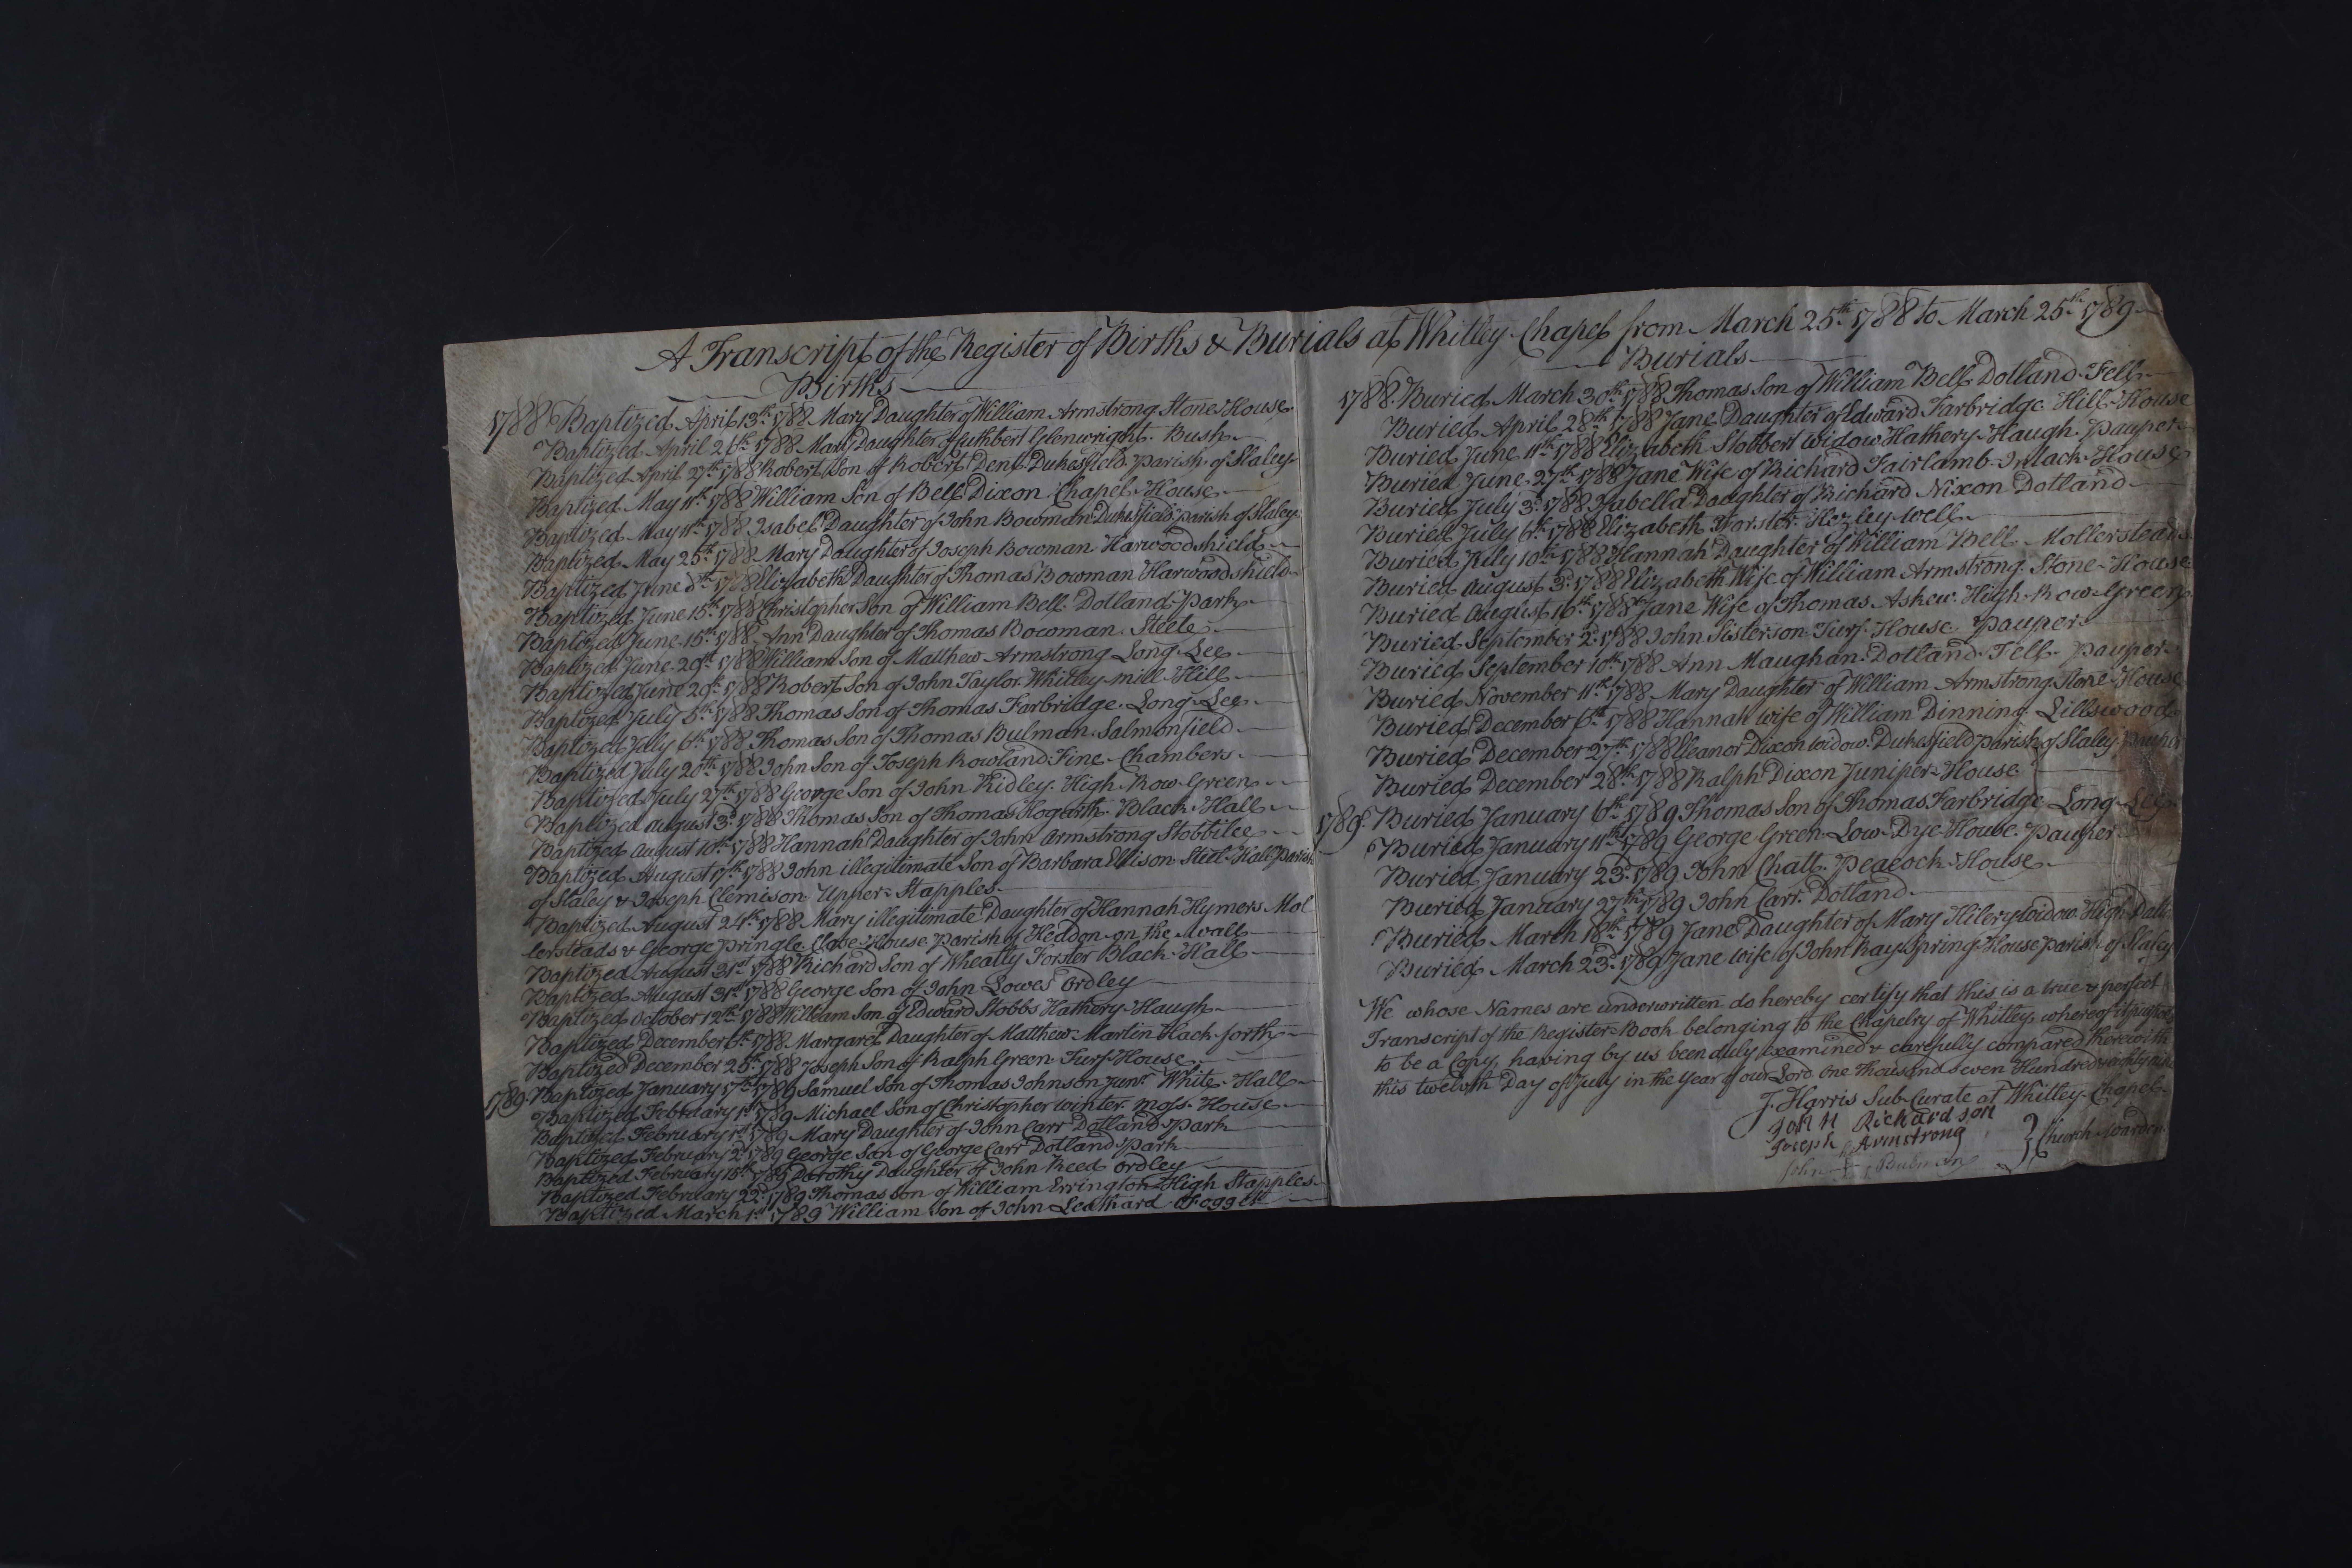 A Transcript of the Register of Births & Burials at Whitley Chapel from March 25th 1788 to March 25th 1789
Births
1788 Baptized April 13th 1788 Mary Daughter of William Armstrong Stone House
Baptized April 26th 1788 Mary Daughter of Cuthbert Glenwright Bush
Baptized April 27th 1788 Robert Son of Robert Dent Dukesfield parish of Slaley
Baptized May 11th 1788 William Son of Bell Dixon Chapel House
Baptized May 11th 1788 Isabel Daughter of John Bowman Dukesfield parish of Slaley
Baptized May 25th 1788 Mary Daughter of Joseph Bowman Harwoodshield
Baptized June 8th 1788 Elizabeth Daughter of Thomas Bowman Harwoodshield
Baptized June 15th 1788 Christopher Son of William Bell Dotland Park
Baptized June 15th 1788 Ann Daughter of Thomas Bowman Steele
Baptized June 29th 1788 William Son of Matthew Armstrong Long Lee
Baptized June 29th 1788 Robert Son of John Taylor Whitley mill Hill
Baptized July 5th 1788 Thomas Son of Thomas Farbridge Long Lee
Baptized July 6th 1788 Thomas Son of Thomas Bulman Salmonfield
Baptized July 20th 1788 John Son of Joseph Rowland Fine Chambers
Baptized July 27th 1788 George Son of John Ridley High Row Green
Baptized August 3d 1788 Thomas Son of Thomas Hogarth Black Hall
Baptized August 10th 1788 Hannah Daughter of John Armstrong Stobbilee
Baptized August 17th 1788 John illegitimate Son of Barbara Ellison Steel Hall Parish
of Slaley & Joseph Clemison Upper Stapples
Baptized August 24th 1788 Mary illegitimate Daughter of Hannah Hymers Mol
lersteads & George Pringle House Parish of Heddon on the Wall
Baptized August 31st 1788 Richard Son of Wheatly Forster Black Hall
Baptized August 31st 1788 George Son of John Lowes Ordley
Baptized October 12th 1788 William Son of Edward Stobbs Hathery Haugh
Baptized December 1788 Margaret Daughter of Matthew Martin Hack forth
Baptized December 25th 1788 Joseph Son of Ralph Green Turf House
1789 Baptized January 17th 1789 Samuel Son of Thomas Johnson Junr White Hall
Baptized February 1st 1789 Michael Son of Christopher Winter Moss House
Baptized February 1st 1789 Mary Daughter of John Carr Dotland Park
Baptized February 2d 1789 George Son of George Carr Dotland Park
Baptized February 15th 1789 Dorothy Daughter of John Reed Ordley
Baptized February 22d 1789 Thomas Son of William Errington High Stapples
Baptized March 1st 1789 William Son of John Leathard Foggett
Burials
1788 Buried March 30th 1788 Thomas Son of William Bell Dotland Fell
Buried April 28th 1788 Jane Daughter of Edward Farbridge Hill House
Buried June 11th 1788 Elizabeth Stobbert Widow Hathery Haugh Pauper
Buried June 27th 1788 Jane Wife of Richard Fairlamb Intack House
Buried July 3d 1788 Isabella Daughter of Richard Nixon Dotland
Buried July 6th 1788 Elizabeth Forster Hezley well
Buried July 10th 1788 Hannah Daughter of William Bell Mollersteads
Buried August 3d 1788 Elizabeth Wife of William Armstrong Stone House
Buried August 16th 1788 Jane Wife of Thomas Askew High Row Green
Buried September 2d 1788 John Sisterson Turf House Pauper
Buried September 10th 1788 Ann Maughan Dotland Fell Pauper
Buried November 11th 1788 Mary Daughter of William Armstrong Stone House
Buried December 6th 1788 Hannah Wife of William Dinning Lillswood
Buried December 27th 1788 Eleanor Dixon Widow Dukesfield parish of Slaley Pauper
Buried December 28th 1788 Ralph Dixon Juniper House
1789 Buried January 6th 1789 Thomas Son of Thomas Farbridge Long Lee
Buried January 11th 1789 George Green Low Dye House Pauper
Buried January 23d 1789 John Chatt Peacock House
Buried January 27th 1789 John Carr Dotland
Buried March 18th 1789 Jane Daughter of Mary Hilery Widow High
Buried March 23d 1789 Jane wife of John Ray Spring House parish of Slaley
We whose Names are underwritten do hereby certify that this is a true & perfect
Transcript of the Register Book belonging to the Chapelry of Whitley whereof it purports
to be a Copy, having by us been duly examined & carefully compared therewith
this twelvth Day of July in the Year of our Lord One Thousand Seven Hundred eighty nine
J. Harris Sub Curate at Whitley Chapel
John Richardson
Joseph Armstrong
John Bulman
Church Wardens